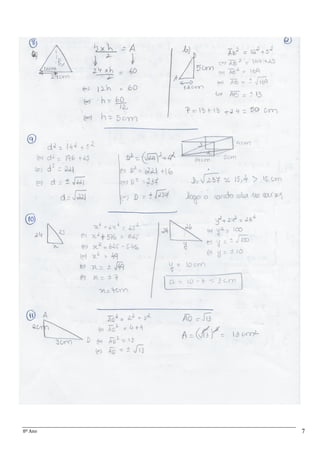 8
a)
2cm
24cm
h
b×h/2 = A
24×h/2 = 60
⇔ 12h = 60
⇔ h = 60/12
⇔ h = 5cm
b)
A
B
5cm
12cm
AB² = 12² + 5²
⇔ AB² = 144+25
⇔ AB² = 169
⇔ AB = ±√169
⇔ AB = ±13
P = 13+13+24 = 50 cm
9
d² = 14² + 5²
⇔ d² = 196+25
⇔ d² = 221
⇔ d = ±√221
d = √221
D² = (√221)² + 4²
⇔ D² = 221+16
⇔ D² = 237
⇔ D = ±√237
4cm
5cm
14cm
√237 ≈ 15,4 > 15 cm
10
24
25
x
x² + 24² = 25²
⇔ x² + 576 = 625
⇔ x² = 625 - 576
⇔ x² = 49
⇔ x = ±√49
⇔ x = ±7
x = 7cm
24
26
y
y² + 24² = 26²
⇔ y² = 100
⇔ y = ±√100
⇔ y = ±10
y = 10cm
a = 10 - 7 = 3 cm
11
A
2cm
3cm
D
AD² = 2² + 3²
⇔ AD² = 4+9
⇔ AD² = 13
⇔ AD = ±√13
AD = √13
A = (√13)² = 13 cm²
8º Ano
7